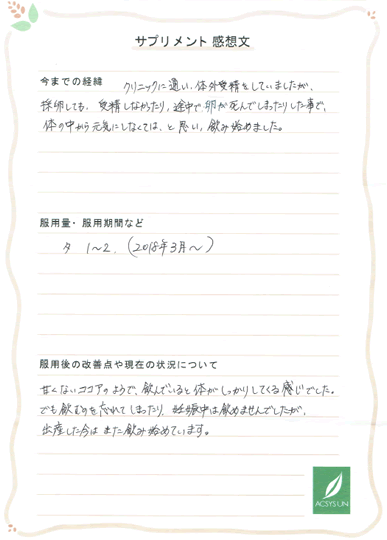 サプリメント 感想文
今までの経緯
クリニックに通い、体外受精をしていましたが、
採卵しても、受精しなかったり、途中で卵が死んでしまったりした事で、
体の中から元気にしなくては、と思い、飲み始めました。
服用量・服用期間など
夕 1〜2. (2018年3月〜)
服用後の改善点や現在の状況について
甘くないココアのようで、飲んでいると体がしっかりしてくる感じでした。
でも飲むのを忘れてしまったり、妊娠中は飲めませんでしたが、
出産した今はまた飲み始めています。
ACSYS UN